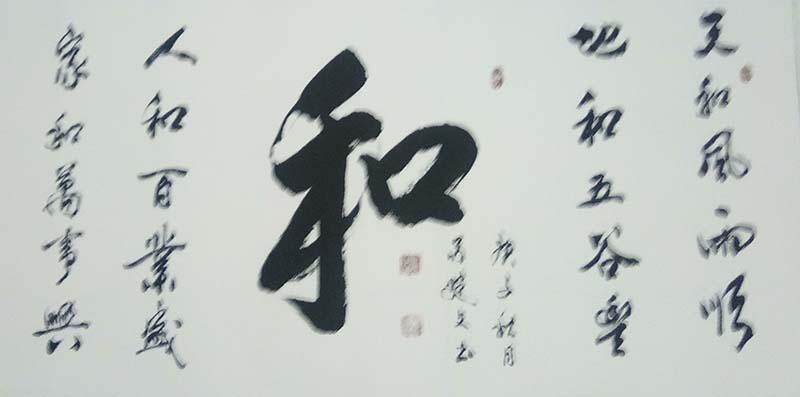 天和風雨順
地和五谷豐
和
庚子秋月
文书
人和百業盛
家和萬事興